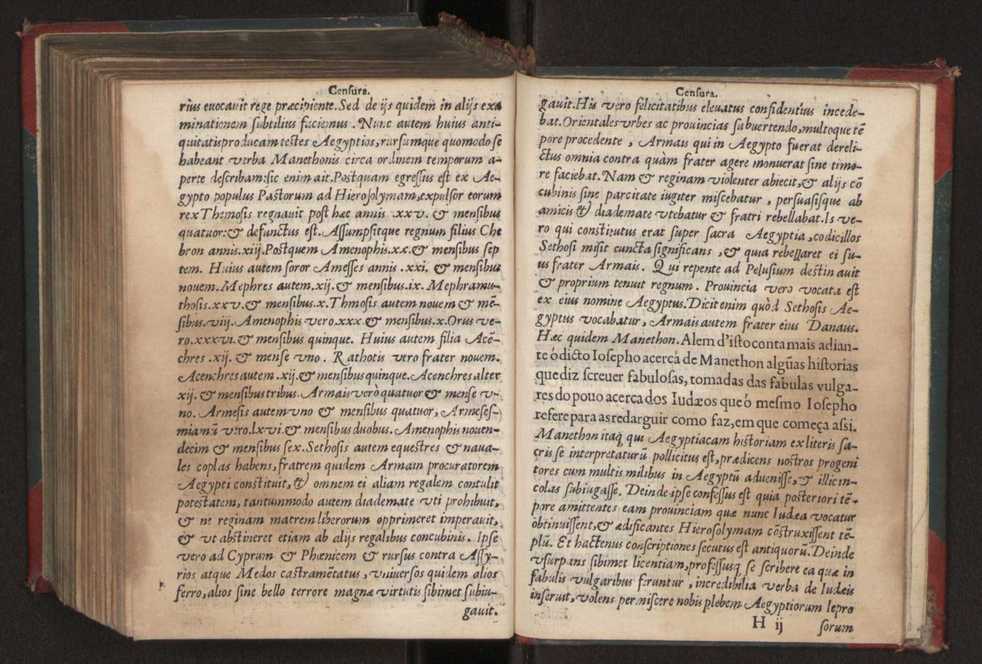 Censura.
rius euocauit rege præcipiente. Sed de ijs quidem in alijs exa
minationem subtilius faciemus. Nunc autem huius anti-
quitatis producam testes Aegyptios, rursumque quomodo se
habeant verba Manethonis circa ordinem temporum a-
perte describam: sic enim ait. Postquam egressus est ex Ae-
gypto populus Pastorum ad Hierosolymam, expulsor eorum
rex Themosis regnauit post hæc annis .xxv. & mensibus
quatuor: & defunctus est. Assumpsitque regnum filius Che
bron annis.xiij. Postquem Amenophis.xx.& mensibus sep
tem. Huius autem soror Amesses annis .xxi. & mensibus
nouem. Mephres autem.xij.& mensibus.ix. Mephramu-
thosis.xxv.& mensibus.x. Thmosis autem nouem & mē-
sibus.viij. Amenophis vero.xxx.& mensibus.x. Orus ve-
ro.xxxvi.& mensibus quinque. Huius autem filia Acē-
chres .xij. & mense vno. Rathotis vero frater nouem.
Acenchres autem .xij.& mensibus quinque. Acenchres alter
xij. & mensibus tribus. Armais verò quatuor & mense v-
no. Armesis autem vno & mensibus quatuor, Armeses-
miamū vero.lxvi.& mensibus duobus. Amenophis nouen-
decim & mensibus sex. Sethosis autem equestres & naua-
les copias habens, fratrem quidem Armain procuratorem
Aegypti constituit, & omnem ei aliam regalem contulit
potestatem, tantummodo autem diademate vti prohibuit,
& ne reginam matrem liberorum opprimeret imperauit,
& vt abstineret etiam ab alijs regalibus concubinis. Ipse
vero ad Cyprum & Phœnicem & rursus contra Assy-
rios atque Medos castrametatus, vniuersos quidem alios
ferro, alios sine bello terrore magnæ virtutis sibimet subiu-
gauit.
Censura.
gauit. His vero felicitatibus eleuatus confidentius incede-
bat. Orientales vrbes ac prouincias sabuertendo, multoque tē
pore procedente, Armais qui in Aegypto fuerat dereli-
ctus omnia contra quàm frater agere monuerat sine timo-
re faciebat. Nam & reginam violenter abiecit, & alijs cō
cubinis sine parcitate iugiter miscebatur, persuasisque ab
amicis & diademate vtebatur & fratri rebellabat. Is ve-
ro qui constitutus erat super sacra Aegyptia, codicillos
Sethosi misit cuncta significans, & quia rebellaret ei su-
us frater Armais. Qui repente ad Pelusium destinauit
& proprium tenuit regnum. Prouincia vero vocata est
ex eius nomine Aegyptus. Dicit enim quòd Sethosis Ae-
gyptus vocabatur, Armais autem frater eius Danaus.
Hæc quidem Manethon. Alem d'isto conta mais adian-
te ò dicto Iosepho acerca de Manethon algũas historias
que diz screuer fabulosas, tomadas das fabulas vulga-
res do pouo acerca dos Iudæos que ò mesmo Iosepho
refere para as redarguir como faz, em que começa assi.
Manethon itaq; qui Aegyptiacam historiam ex literis sa-
cris se interpretaturū pollicitus est, prædicens nostros progeni
tores cum multis milibus in Aegyptū aduenisse, & illic in-
colas subiugasse. Deinde ipse confessus est quia posteriori tē-
pore amittentes eam prouinciam quæ nunc Iudæa vocatur
obtinuissent, & ædificantes Hierosolymam cōstruxissent tē-
plū. Et hactenus conscriptiones secutus est antiquorū. Deinde
vsurpans sibimet licentiam, professusq; se scribere ea quæ in
fabulis vulgaribus feruntur, incredibilia verba de Iudæis
inseruit, volens permiscere nobis plebem Aegyptiorum lepro
H ij sorum